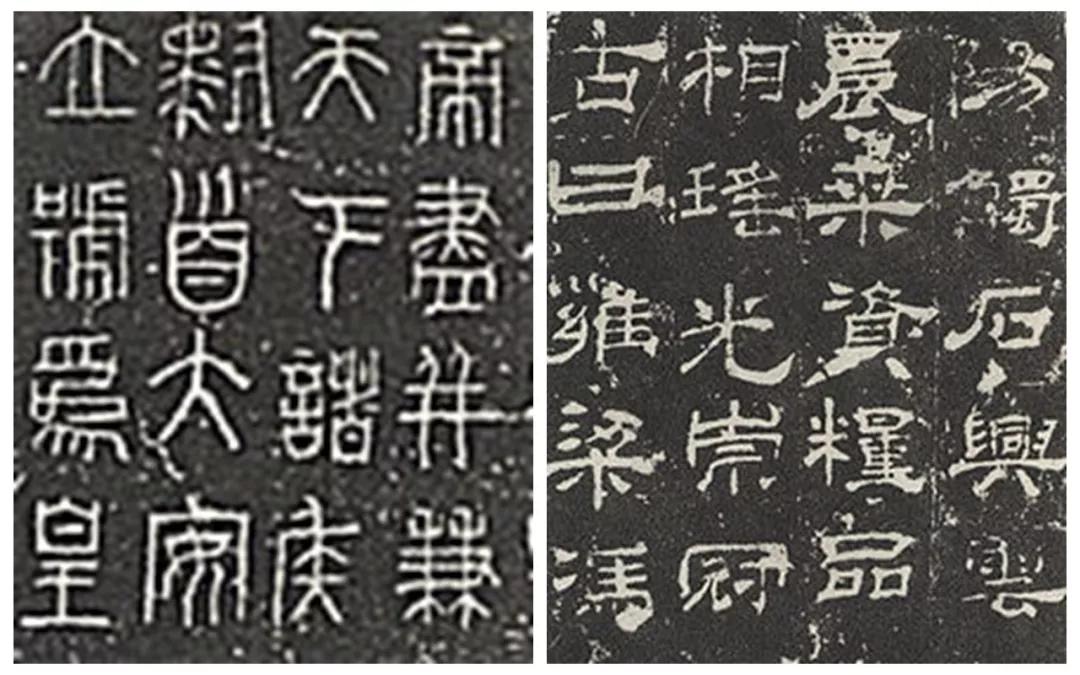 帝盡并兼
天下諸侯
黔首大安
立號爲皇
陽觸石興雲
農桑資糧品
相瑤光崇冠
古曰雍梁馮